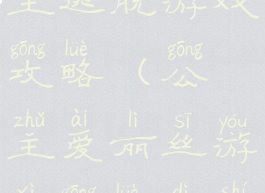 主逃脱游戏
gōng lüè gōng
攻略（公
zhǔ ài lì sī yóu
主爱丽丝游